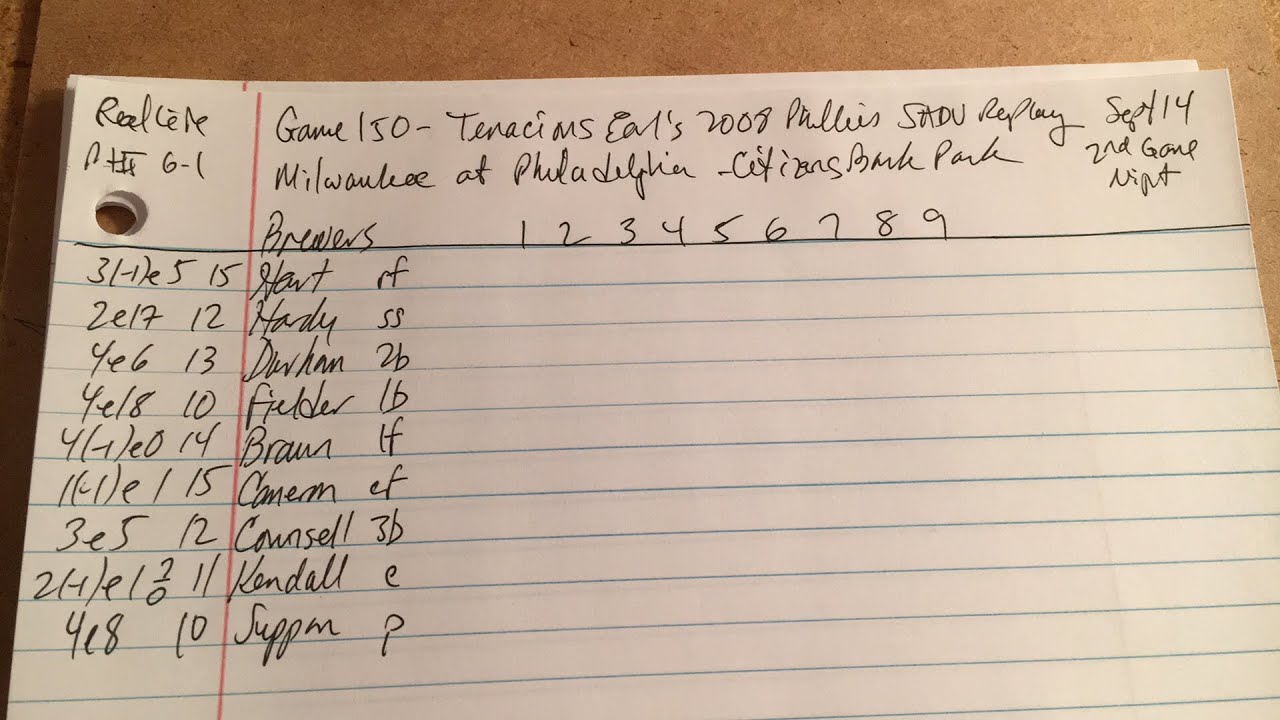 Real Life
PHI 6-1
Game 150 - Tenacious Earl's 2008 Phillies SADV Replay
Milwaukee at Philadelphia - Citizens Bank Park
Sept 14
2nd Game
Night
Brewers 1 2 3 4 5 6 7 8 9
3(-1)e5 15 Hart rf
2e17 12 Hardy ss
4e6 13 Durham 2b
4e18 10 Fielder 1b
4(-1)e0 14 Braun lf
1(-1)e1 15 Cameron cf
3e5 12 Counsell 3b
2(-1)e1 2/0 11 Kendall c
4e8 10 Suppan p